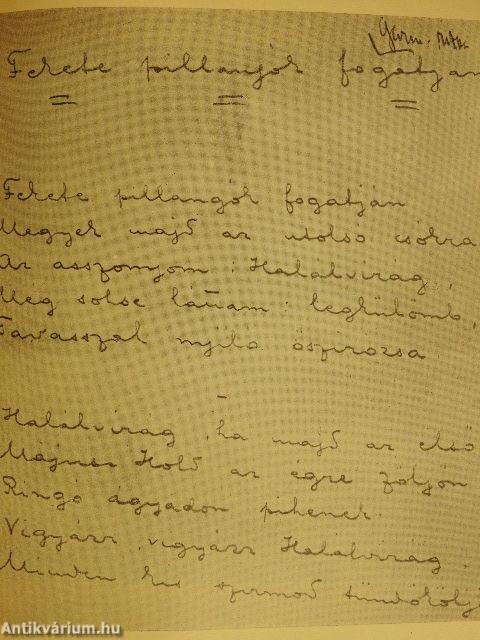 Fekete pillangók fogatján
Fekete pillangók fogatján
Megyek majd az utolsó csókra
Az asszonyom: Halálvirág,
Még sohse láttam: legkülömb,
Tavasszal nyíló őszirózsa
Halálvirág, ha majd az első
Májusi Hold az égre följön
Ringó ágyadon pihenek.
Vigyázz, vigyázz Halálvirág,
Minden kis szirmod tündököljö
Antikvárium.hu